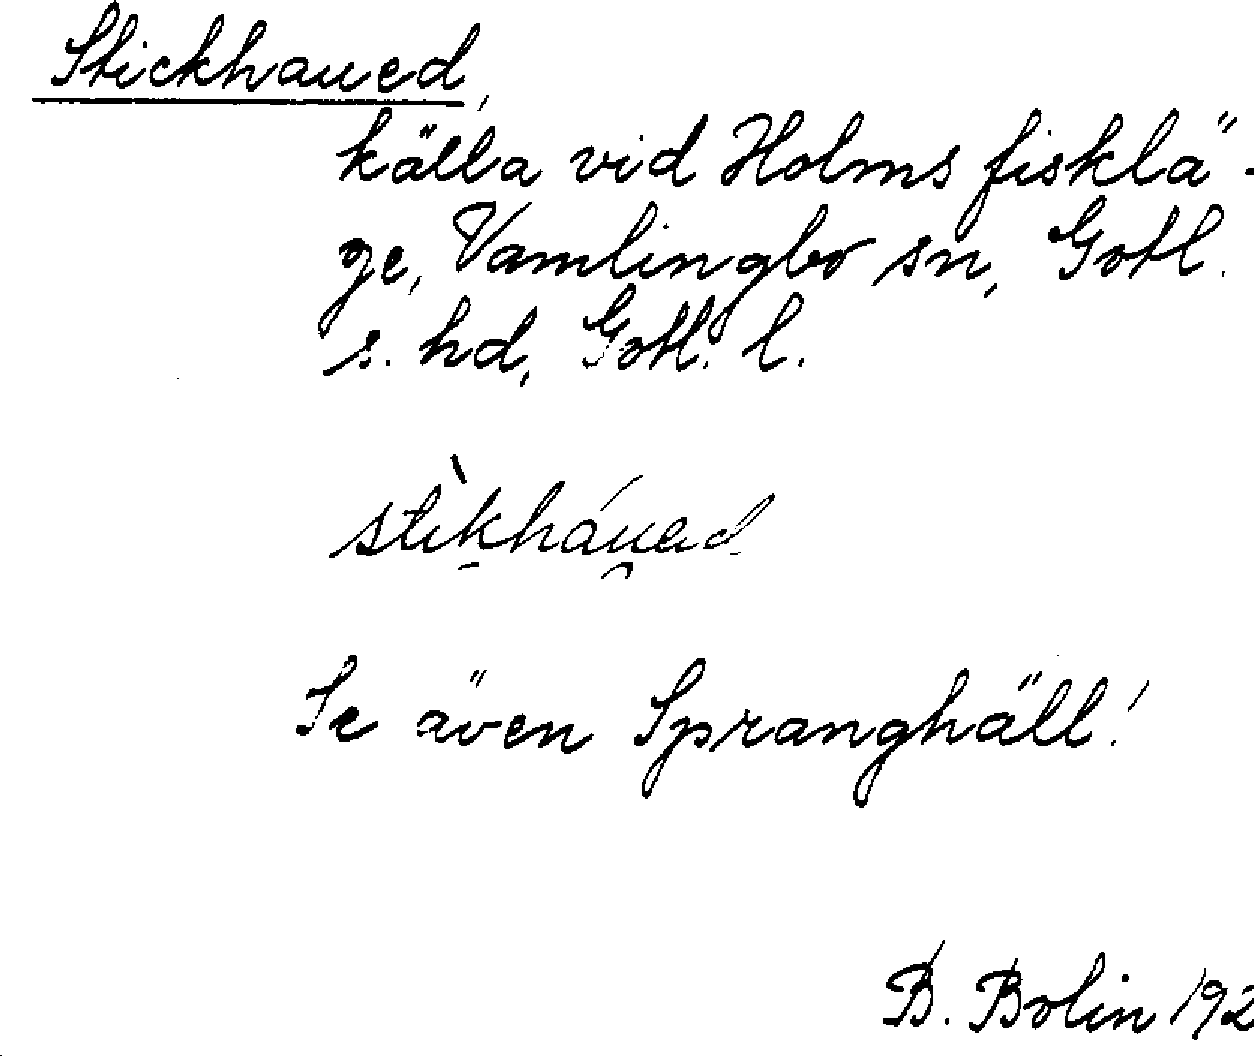 Stickhaued,
källa vid Holms fisklä-
ge, Vamlingbo sn, Gotl.
s. hd, Gotl. l.
stìkháued
Se även Spranghäll!
B. Bolin 192